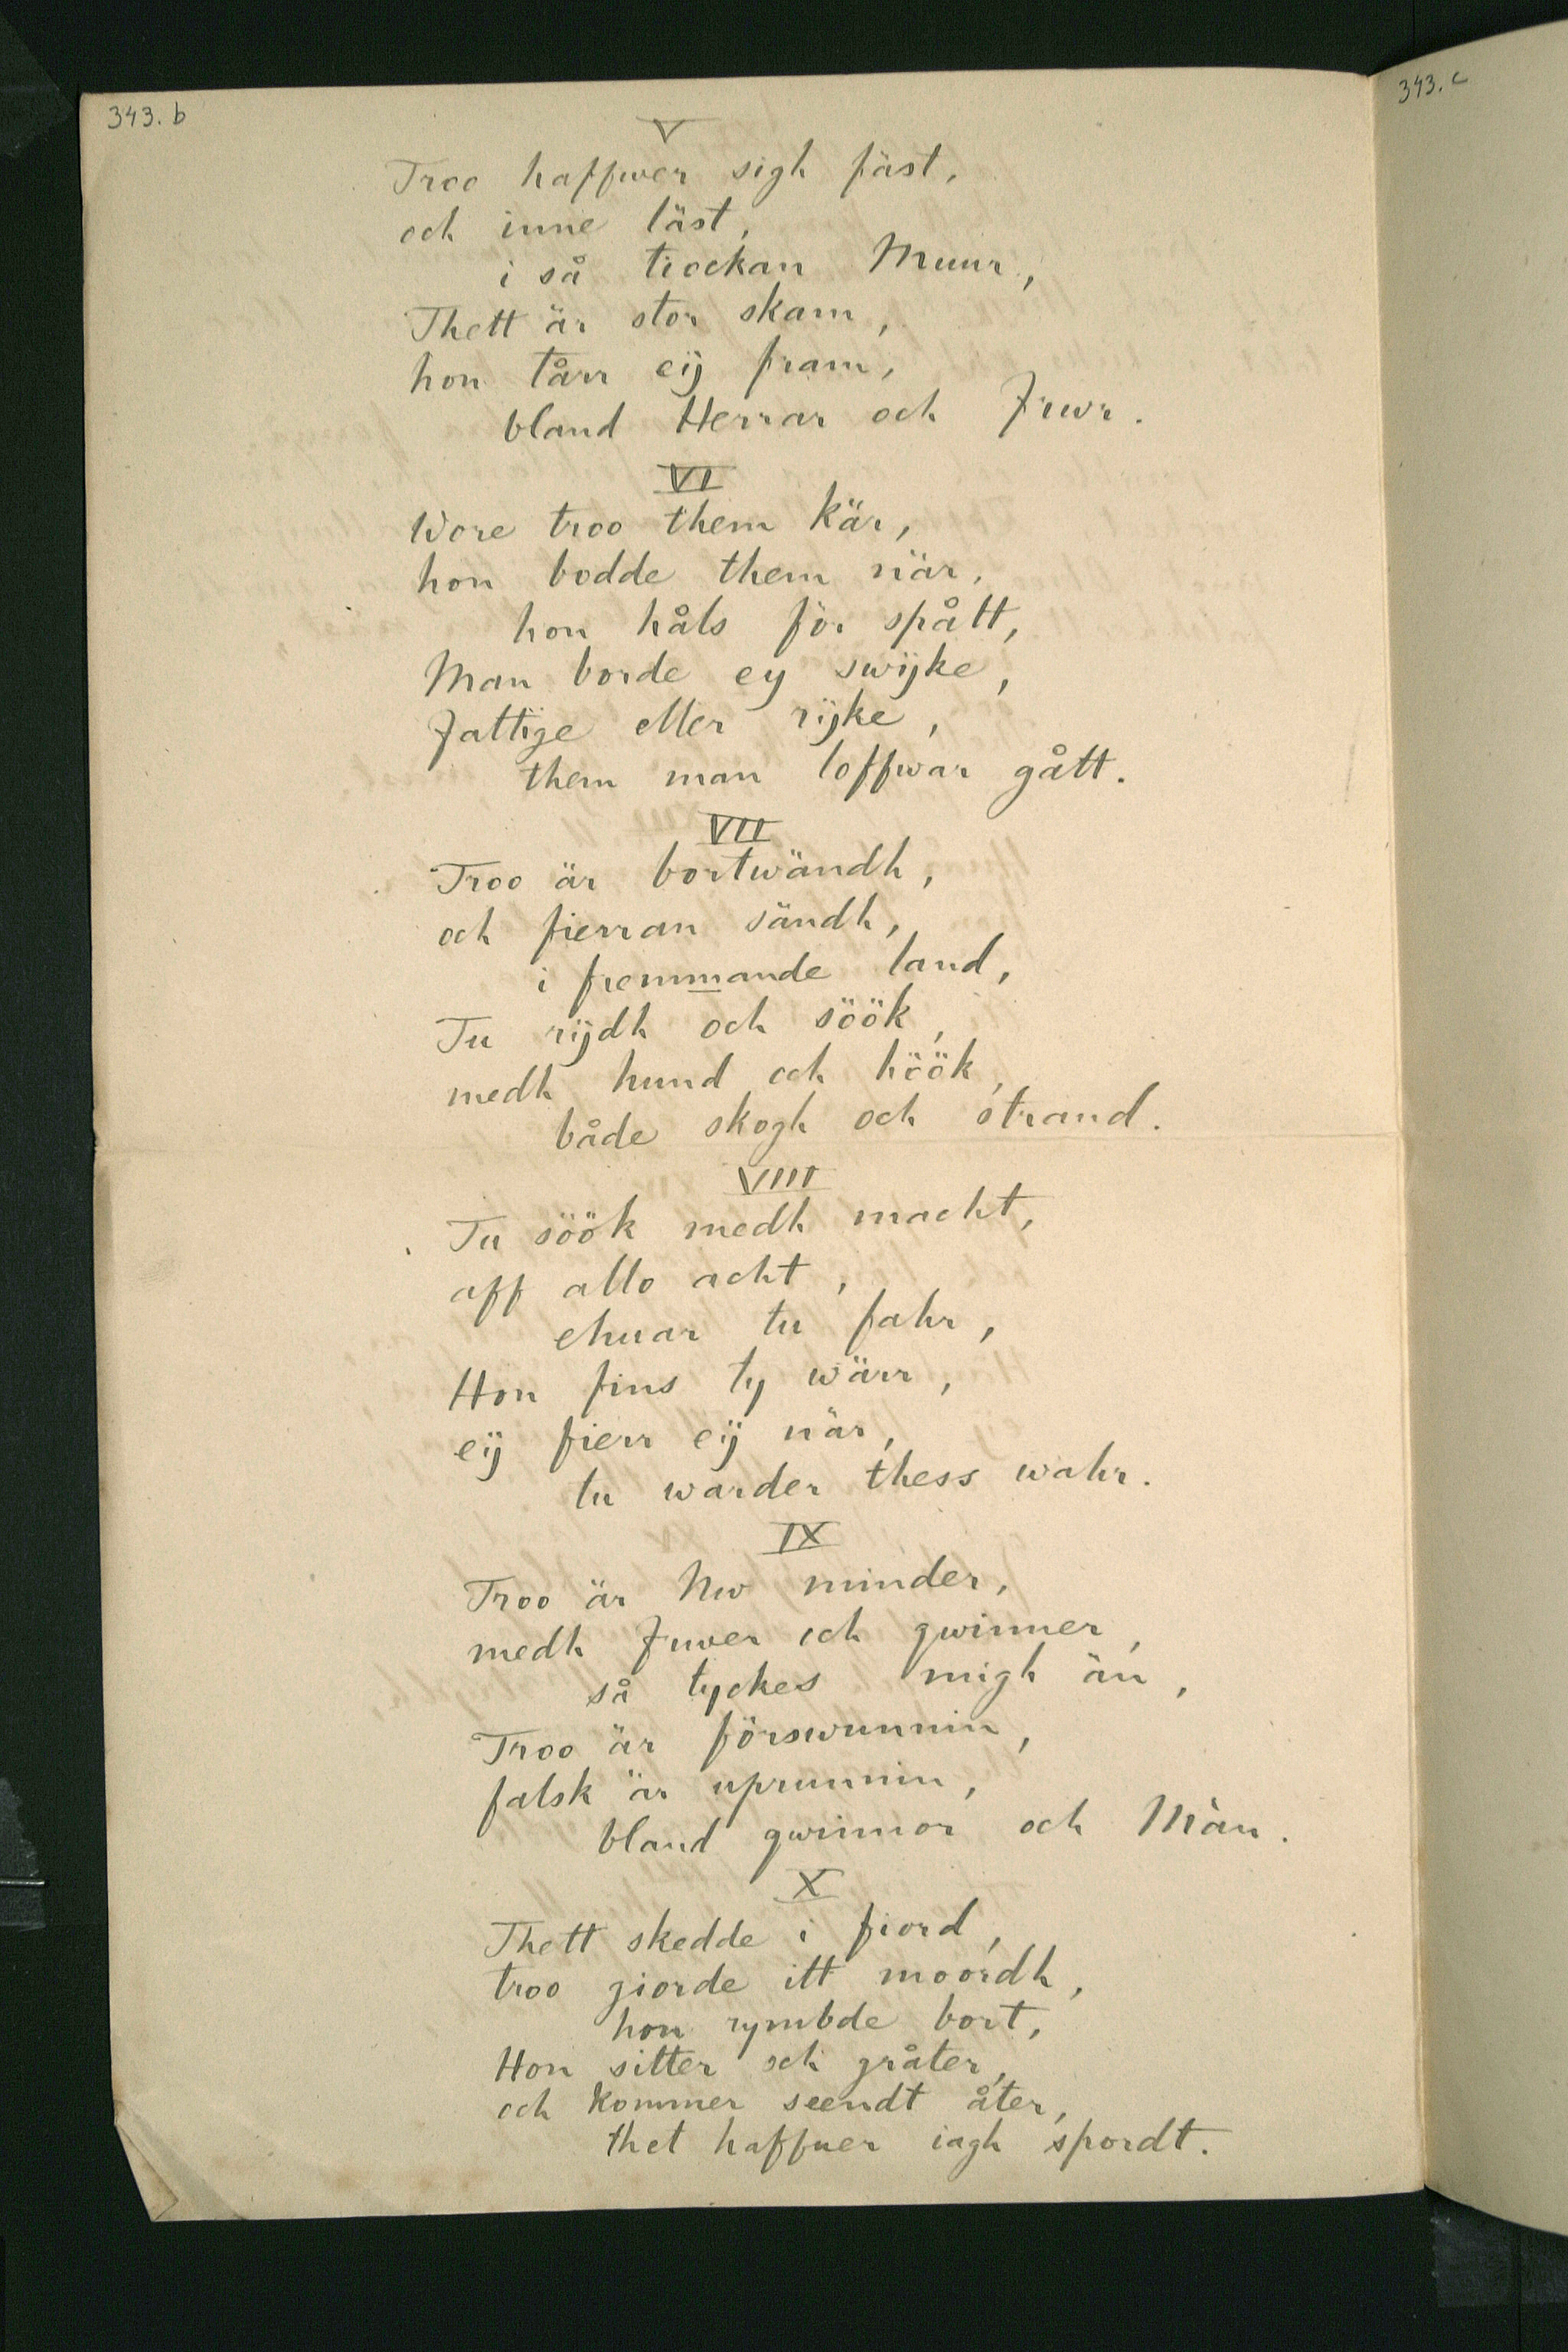 343.b
343.c
V
Troo haffwer sigh fäst,
och inne läst,
i så tiockan Muur,
Thett är stor skam,
hon tårr eij fram,
bland Herrar och Frwr.
VI
Wore troo them kär,
hon bodde them när,
hon håls för spått,
Man borde ey swijke,
Fattige eller rijke,
them man loffwar gått.
VII
Troo är bortwändh,
och fierran sändh,
i fremmande land,
Tu rijdh och söök,
medh hund och höök,
både skogh och strand.
VIII
Tu söök medh macht,
aff allo acht,
ehuar tu fahr,
Hon fins ty wärr,
eij fierr eij när,
tu warder thess wahr.
IX
Troo är Nw minder,
medh Fruer och qwinner,
så tyckes migh än,
Troo är förswunnin,
falsk är uprunnin,
bland qwinnor och Män.
X
Thett skedde i fiord,
troo giorde itt moordh,
hon rymbde bort,
Hon sitter och gråter,
och kommer seendt åter,
thet haffuer iagh spordt.